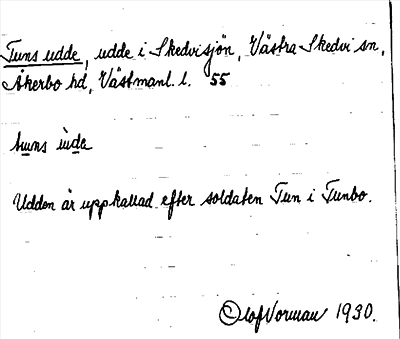 Tuns udde, udde i Skedvisjön, Västra Skedvi sn,
Åkerbo hd, Västmanl. l. 55
tuns ùde
Udden är uppkallad efter soldaten Tun i Tunbo.
Olof Vorman 1930.